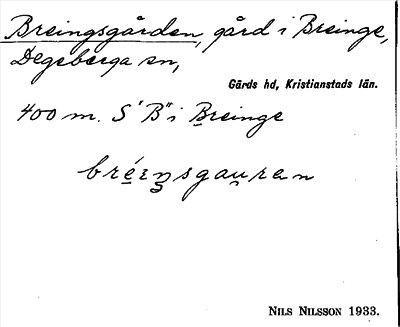 Breingsgården, gård i Breinge,
Degeberga sn,
Gärds hd, Kristianstads län.
400 m. S "B" i Breinge
NILS NILSSON 1933.